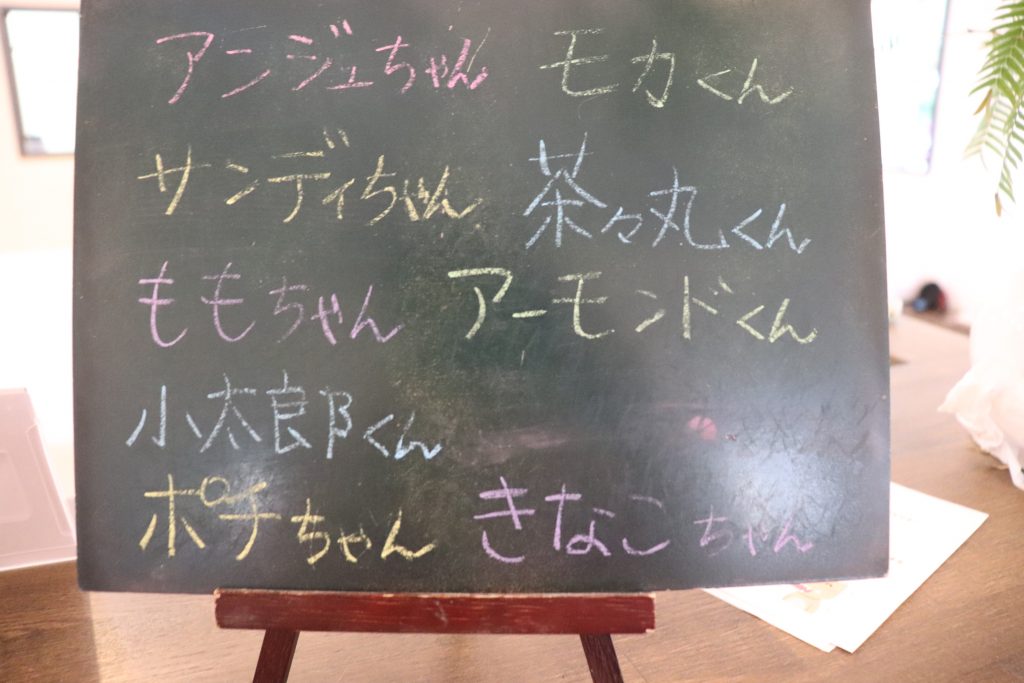 アンジュちゃん モカくん
サンディちゃん 茶々丸くん
ももちゃん アーモンドくん
小太郎くん
ポチちゃん きなこちゃん